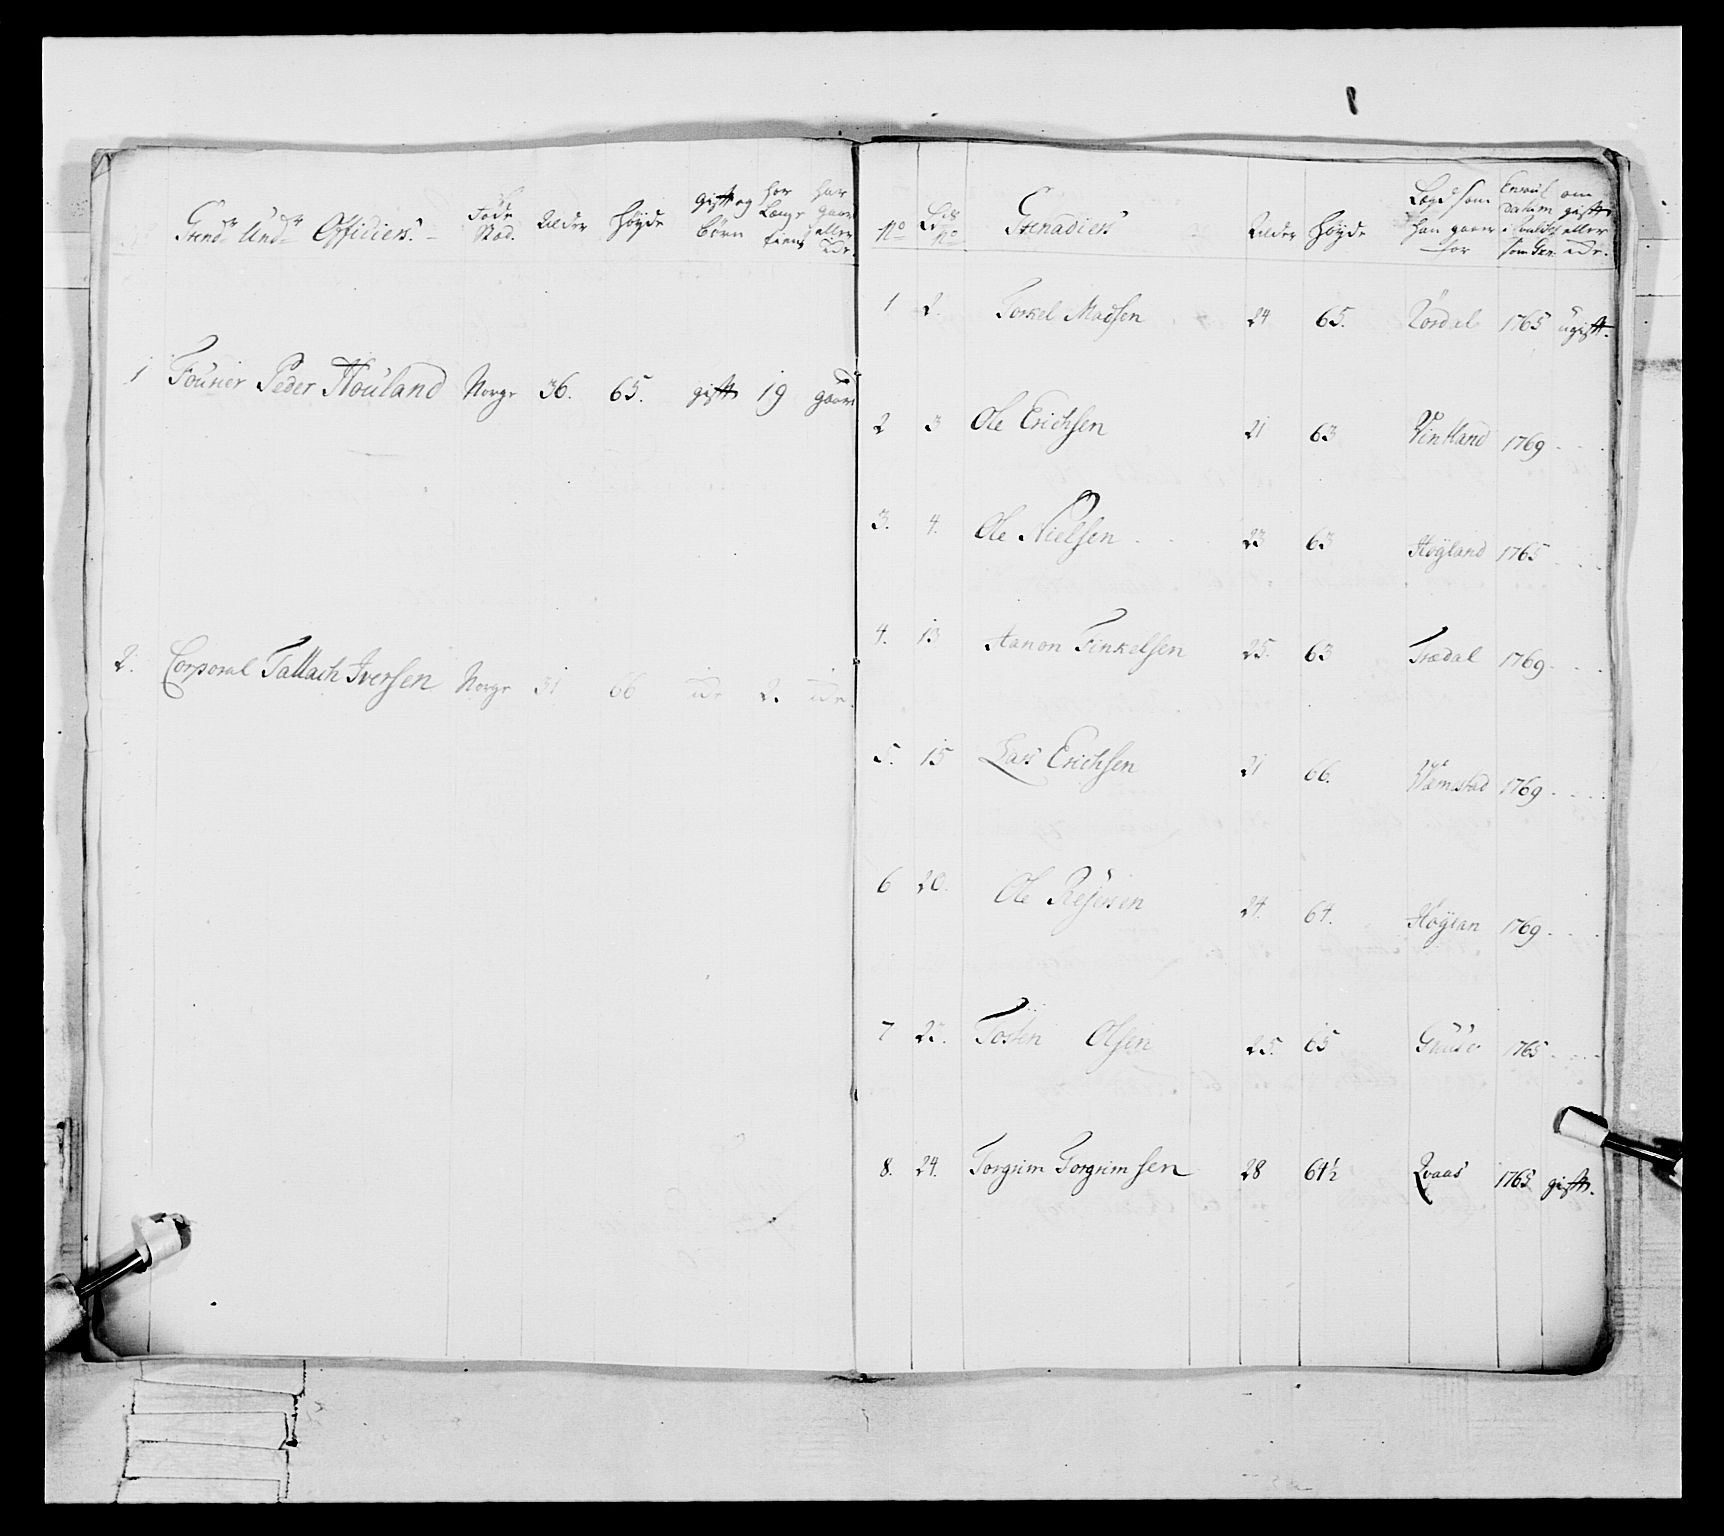 Gren: Und: Officiers. Föde Stæd. Alder Høyde gift og börn hor Længe tient har gaard eller Ede.
1 Fourier Peder Houland Norge 36. 65. gift 19 gaard
2. Corporal Tallach Iversen Norge 31 66 ude 2. ude.
No Lds No Grenadiers Alder Høyde Lægd som han gaaer for som Gren. om gift eller ude.
1 2. Torkel Madsen 24 65. 1765 ugift.
2 3 Ole Erichsen 21 63 Vintland 1769 - - -
3. 4. Ole Nielsen 23 63 Høyland 1765 - - -
4. 13 Aanon Tinkelsen 25. 63 Trædal 1769 - - -
5. 15 Lars Erichsen 21 66. Væmestad 1769 - - -
6 20. Ole Rejersen 24. 64. Høylan 1769 - - -
7 23. Tosten Olsen 25. 65 1765 - - -
8. 24. Torgrim Torgrimsen 28 64½ Qvaas 1765 gift.